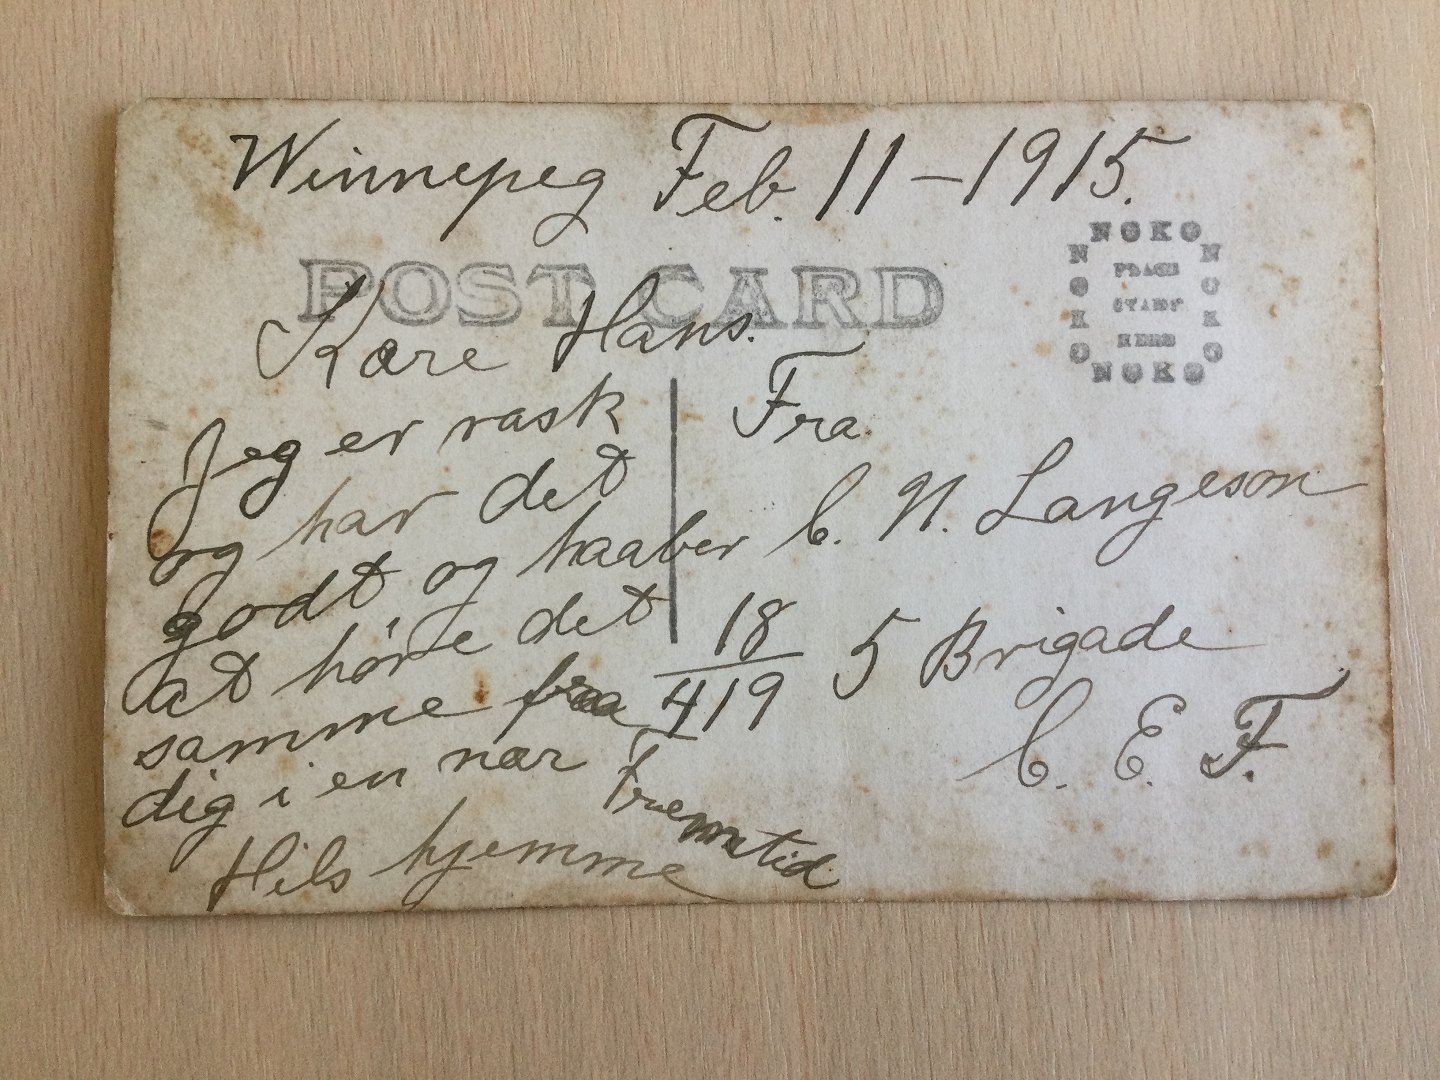 Winnepeg Feb. 11 – 1915.
POST CARD
NOKO
NOKO
NOKO
NOKO
PLACE
STAMP
HERE
Kære Hans.
Jeg er rask
og har det
godt og haaber
at höre det
samme fraa
dig i en nær Fremtid.
Hils hjemme
Fra
C. N. Langeson
18/419 5 Brigade
C. E. F.